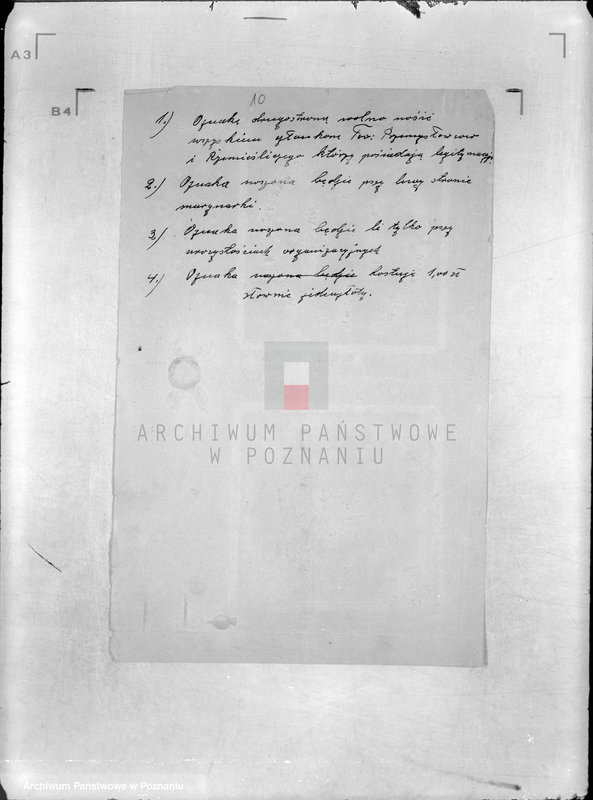 A3
B4
10
1.) Oznakę wolno nosić
wszystkim członkom Tow: Przemysłowców
i którzy posiadają legitymację
2.) Oznaka noszona będzie przy lewej stronie
marynarki.
3.) Oznaka noszona będzie li tylko przy
uroczystościach organizacyjnych
4.) Oznaka noszona będzie kosztuje 1,00 zł
słownie jeden złoty.
ARCHIWUM PAŃSTWOWE
W POZNANIU
Archiwum Państwowe w Poznaniu